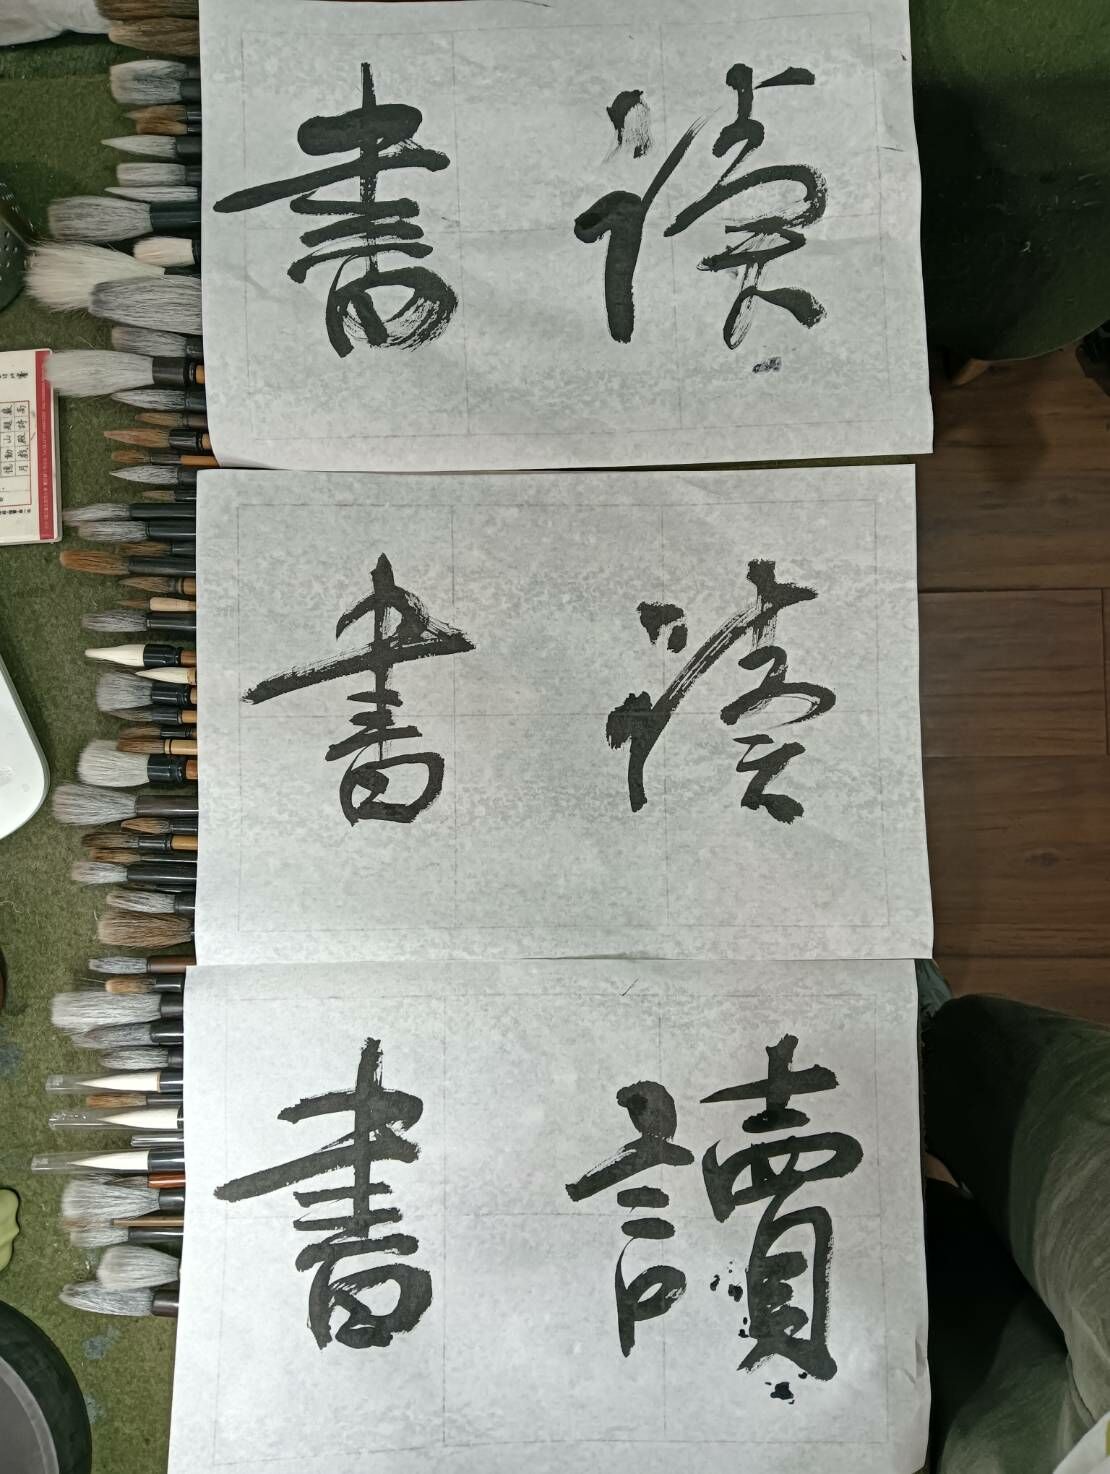 讀書
讀書
讀書